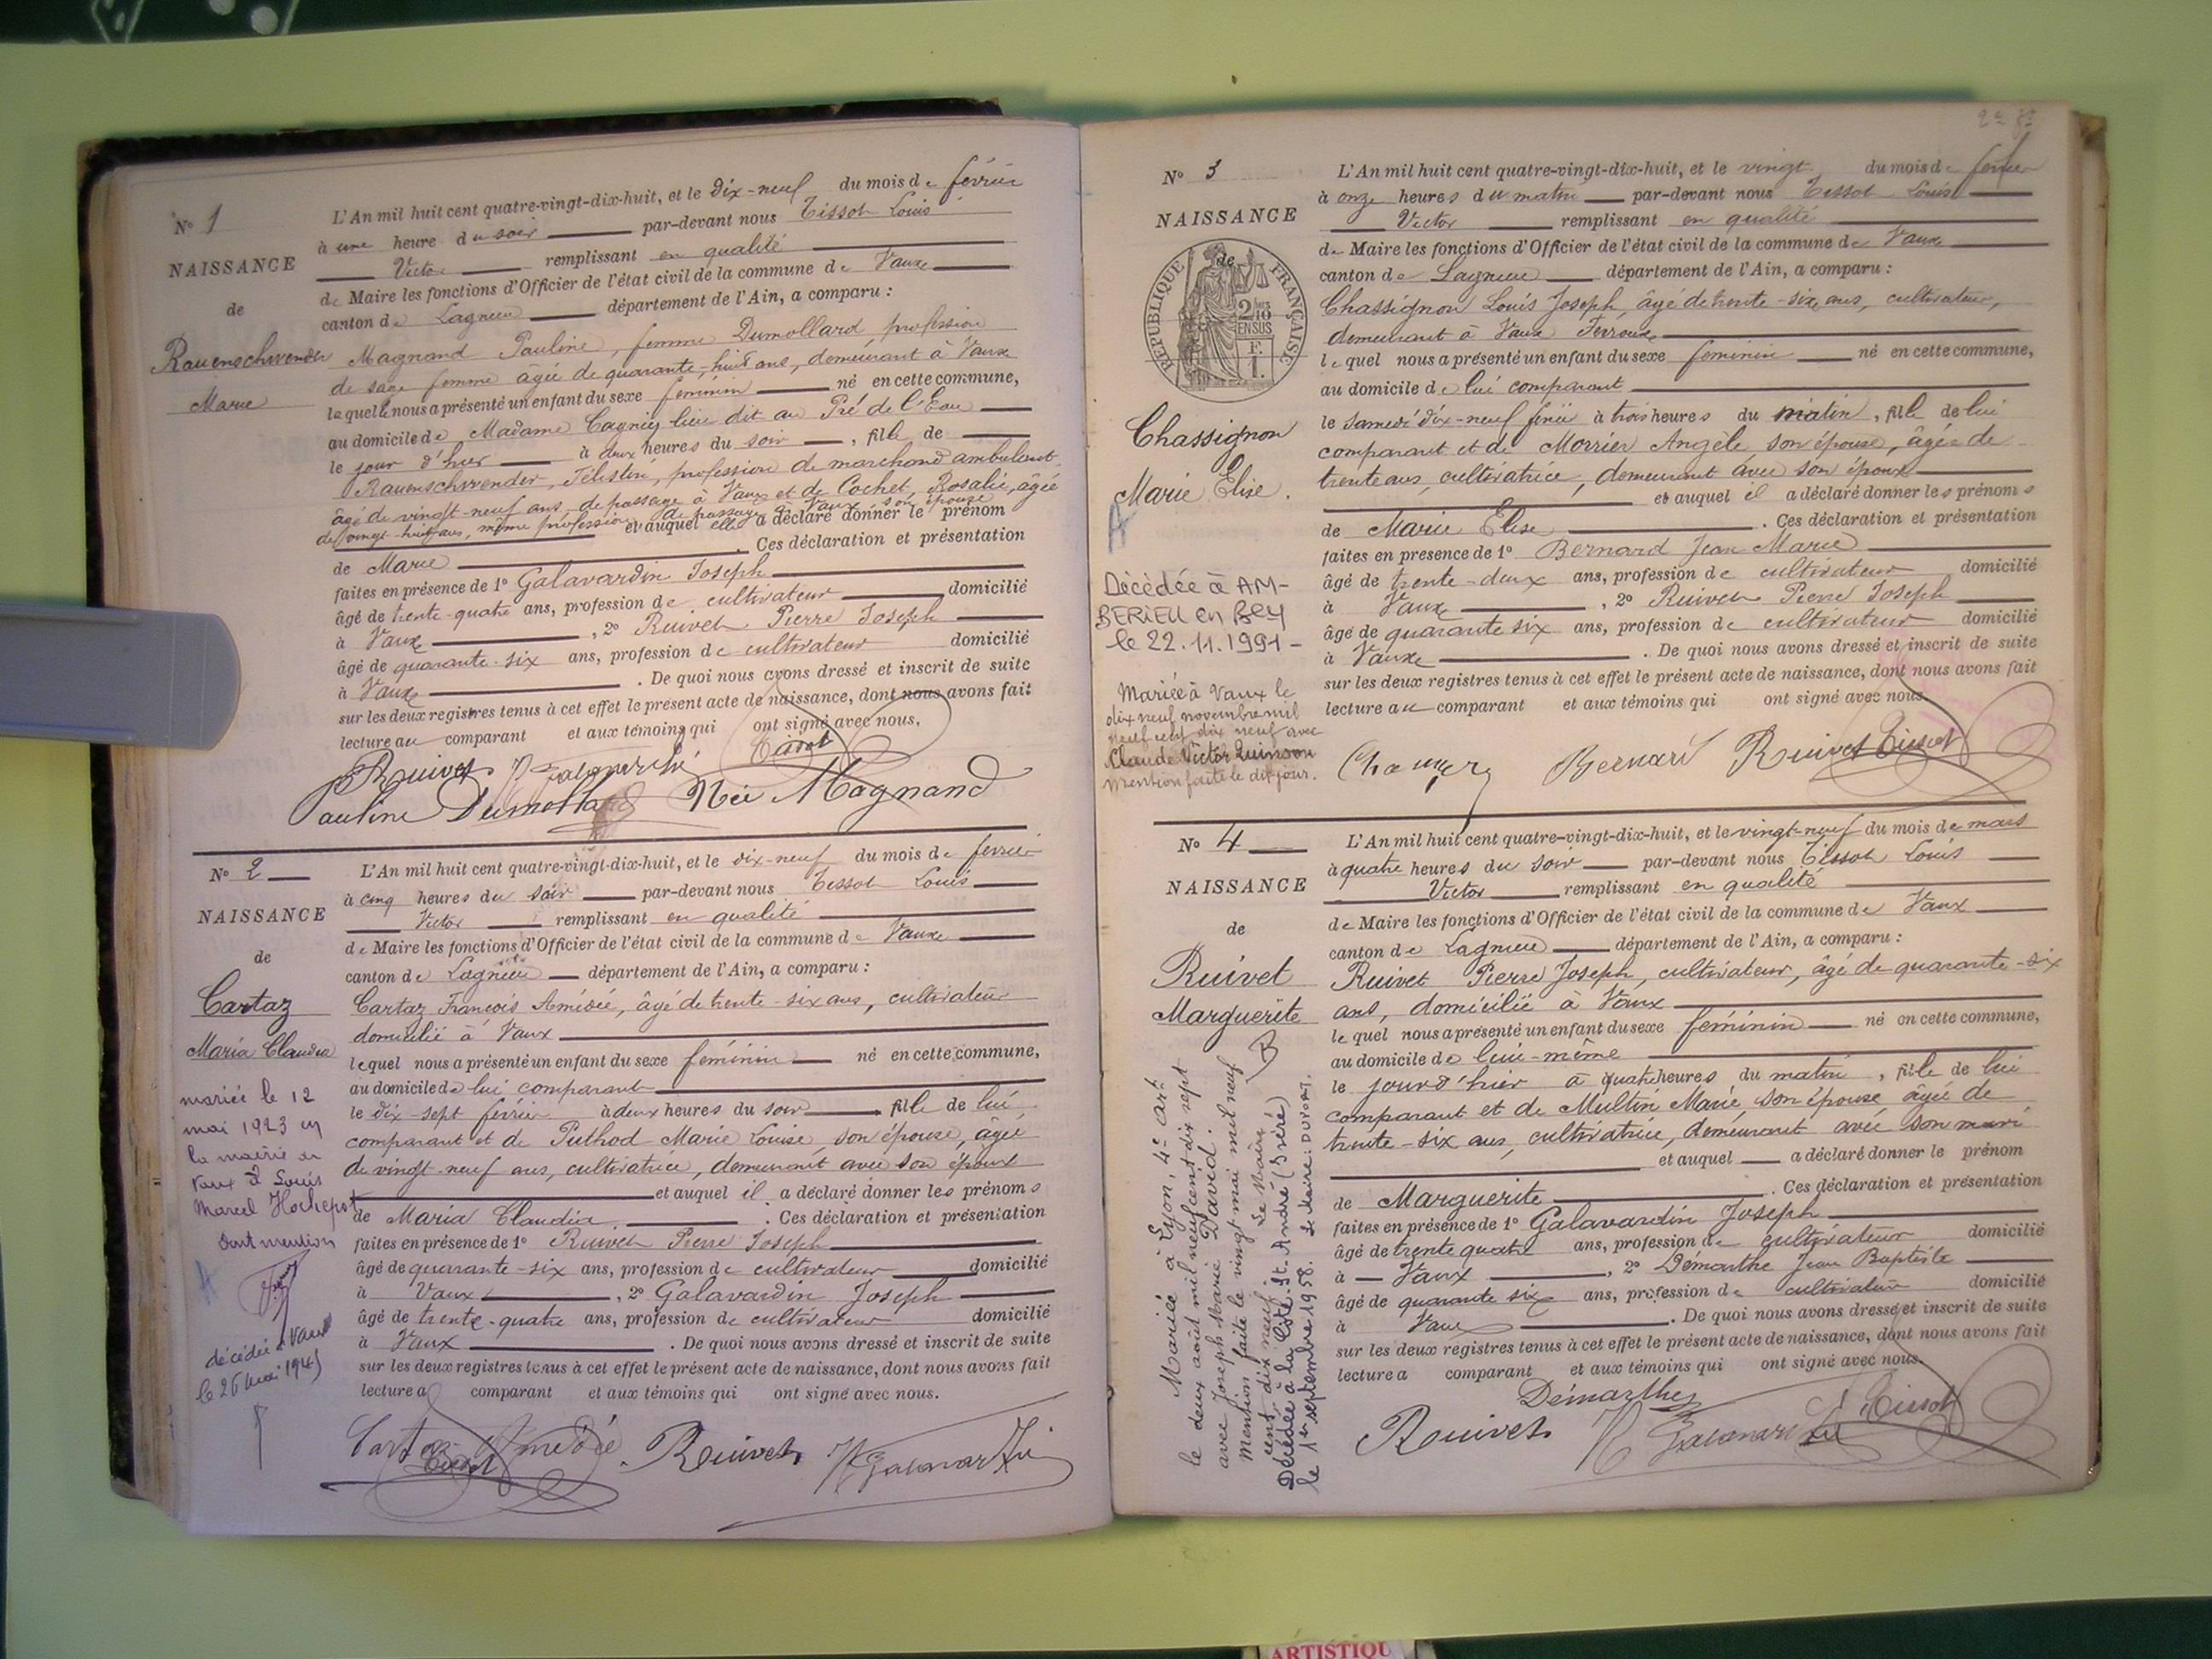 N° 1
NAISSANCE
de
Rauenschwender
Marie
L'An mil huit cent quatre-vingt-dix-huit, et le dix-neuf du mois de février
à une heure du soir par-devant nous Tissot Louis
Victor remplissant en qualité
de Maire les fonctions d'Officier de l'état civil de la commune de Vaux
canton de Lagnieu département de l'Ain, a comparu :
Magnand Pauline, femme Dumollard, profession
de sage femme âgée de quarante-huit ans, demeurant à Vaux
lequelle nous a présenté un enfant du sexe féminin né en cette commune,
au domicile de Madame lieu dit au Pré de l'Eau
le jour d'hier à deux heures du soir, fille de
Rauenschwender, Télestin, profession de marchand ambulant
âgé de vingt-neuf ans, de passage à Vaux et de Cochet, Rosalie, âgée
de vingt-huit ans, même profession, de passage à Vaux son épouse
et auquel elle a déclaré donner le prénom
de Marie . Ces déclaration et présentation
faites en présence de 1° Galavardin Joseph
âgé de trente-quatre ans, profession de cultivateur domicilié
à Vaux, 2° Ruivet Pierre Joseph
âgé de quarante-six ans, profession de cultivateur domicilié
à Vaux . De quoi nous avons dressé et inscrit de suite
sur les deux registres tenus à cet effet le présent acte de naissance, dont nous avons fait
lecture au comparant et aux témoins qui ont signé avec nous.
Ruivet Galavardin Tissot
Pauline Dumollard Née Magnand
N° 2
NAISSANCE
de
Cartaz
Maria Claudia
mariée le 12
mai 1923 en
la mairie de
Vaux à Louis
Marcel Hochepot
dont mention
décédée à Vaux
le 26 mai 1945
L'An mil huit cent quatre-vingt-dix-huit, et le dix-neuf du mois de février
à cinq heures du soir par-devant nous Tissot Louis
Victor remplissant en qualité
de Maire les fonctions d'Officier de l'état civil de la commune de Vaux
canton de Lagnieu département de l'Ain, a comparu :
Cartaz François Amédée, âgé de trente-six ans, cultivateur
domicilié à Vaux
lequel nous a présenté un enfant du sexe féminin né en cette commune,
au domicile de lui comparant
le dix-sept février à deux heures du soir fille de lui
comparant et de Puthod Marie Louise, son épouse, âgée
de vingt-neuf ans, cultivatrice, demeurant avec son époux
et auquel il a déclaré donner les prénoms
de Maria Claudia . Ces déclaration et présentation
faites en présence de 1° Ruivet Pierre Joseph
âgé de quarante-six ans, profession de cultivateur domicilié
à Vaux, 2° Galavardin Joseph
âgé de trente-quatre ans, profession de cultivateur domicilié
à Vaux . De quoi nous avons dressé et inscrit de suite
sur les deux registres tenus à cet effet le présent acte de naissance, dont nous avons fait
lecture a comparant et aux témoins qui ont signé avec nous.
Cartaz Amédée Ruivet Galavardin
Tissot
N° 3
NAISSANCE
de
RÉPUBLIQUE FRANÇAISE
2/10 EN SUS
Chassignon
Marie Elise.
Décédée à AM-
BERIEU en BGY
le 22.11.1991-
Mariée à Vaux le
dix neuf novembre mil
neuf cent dix neuf avec
Claude Victor Quinson
mention faite le dit jour.
L'An mil huit cent quatre-vingt-dix-huit, et le vingt du mois de février
à onze heures du matin par-devant nous Tissot Louis
Victor remplissant en qualité
de Maire les fonctions d'Officier de l'état civil de la commune de Vaux
canton de Lagnieu département de l'Ain, a comparu :
Chassignon Louis Joseph, âgé de trente-six ans, cultivateur,
demeurant à Vaux Fevroux
lequel nous a présenté un enfant du sexe féminin né en cette commune,
au domicile de lui comparant
le samedi dix-neuf février à trois heures du matin, fille de lui
comparant et de Morrier Angèle, son épouse, âgée de
trente ans, cultivatrice, demeurant avec son époux
et auquel il a déclaré donner les prénoms
de Marie Elise . Ces déclaration et présentation
faites en présence de 1° Bernard Jean Marie
âgé de trente-deux ans, profession de cultivateur domicilié
à Vaux, 2° Ruivet Pierre Joseph
âgé de quarante six ans, profession de cultivateur domicilié
à Vaux . De quoi nous avons dressé et inscrit de suite
sur les deux registres tenus à cet effet le présent acte de naissance, dont nous avons fait
lecture au comparant et aux témoins qui ont signé avec nous.
Bernard Ruivet Tissot
N° 4
NAISSANCE
de
Ruivet
Marguerite
Mariée à Lyon, 4e Art
le deux août mil neuf cent dix sept
avec Joseph Marie David.
Mention faite le vingt mai mil neuf
cent dix neuf. Le Maire
Décédée à la Côte-St-André (Isère)
le 1er septembre 1958. Le Maire: DUPORT.
L'An mil huit cent quatre-vingt-dix-huit, et le vingt-neuf du mois de mars
à quatre heures du soir par-devant nous Tissot Louis
Victor remplissant en qualité
de Maire les fonctions d'Officier de l'état civil de la commune de Vaux
canton de Lagnieu département de l'Ain, a comparu :
Ruivet Pierre Joseph, cultivateur, âgé de quarante-six
ans, domicilié à Vaux
lequel nous a présenté un enfant du sexe féminin né en cette commune,
au domicile de lui-même
le jour d'hier à quatre heures du matin, fille de lui
comparant et de Multin Marie, son épouse âgée de
trente-six ans, cultivatrice, demeurant avec son mari
et auquel a déclaré donner le prénom
de Marguerite . Ces déclaration et présentation
faites en présence de 1° Galavardin Joseph
âgé de trente quatre ans, profession de cultivateur domicilié
à Vaux, 2° Démarthe Jean Baptiste
âgé de quarante six ans, profession de cultivateur domicilié
à Vaux . De quoi nous avons dressé et inscrit de suite
sur les deux registres tenus à cet effet le présent acte de naissance, dont nous avons fait
lecture a comparant et aux témoins qui ont signé avec nous.
Démarthe Tissot
Ruivet Galavardin
ARTISTIQU